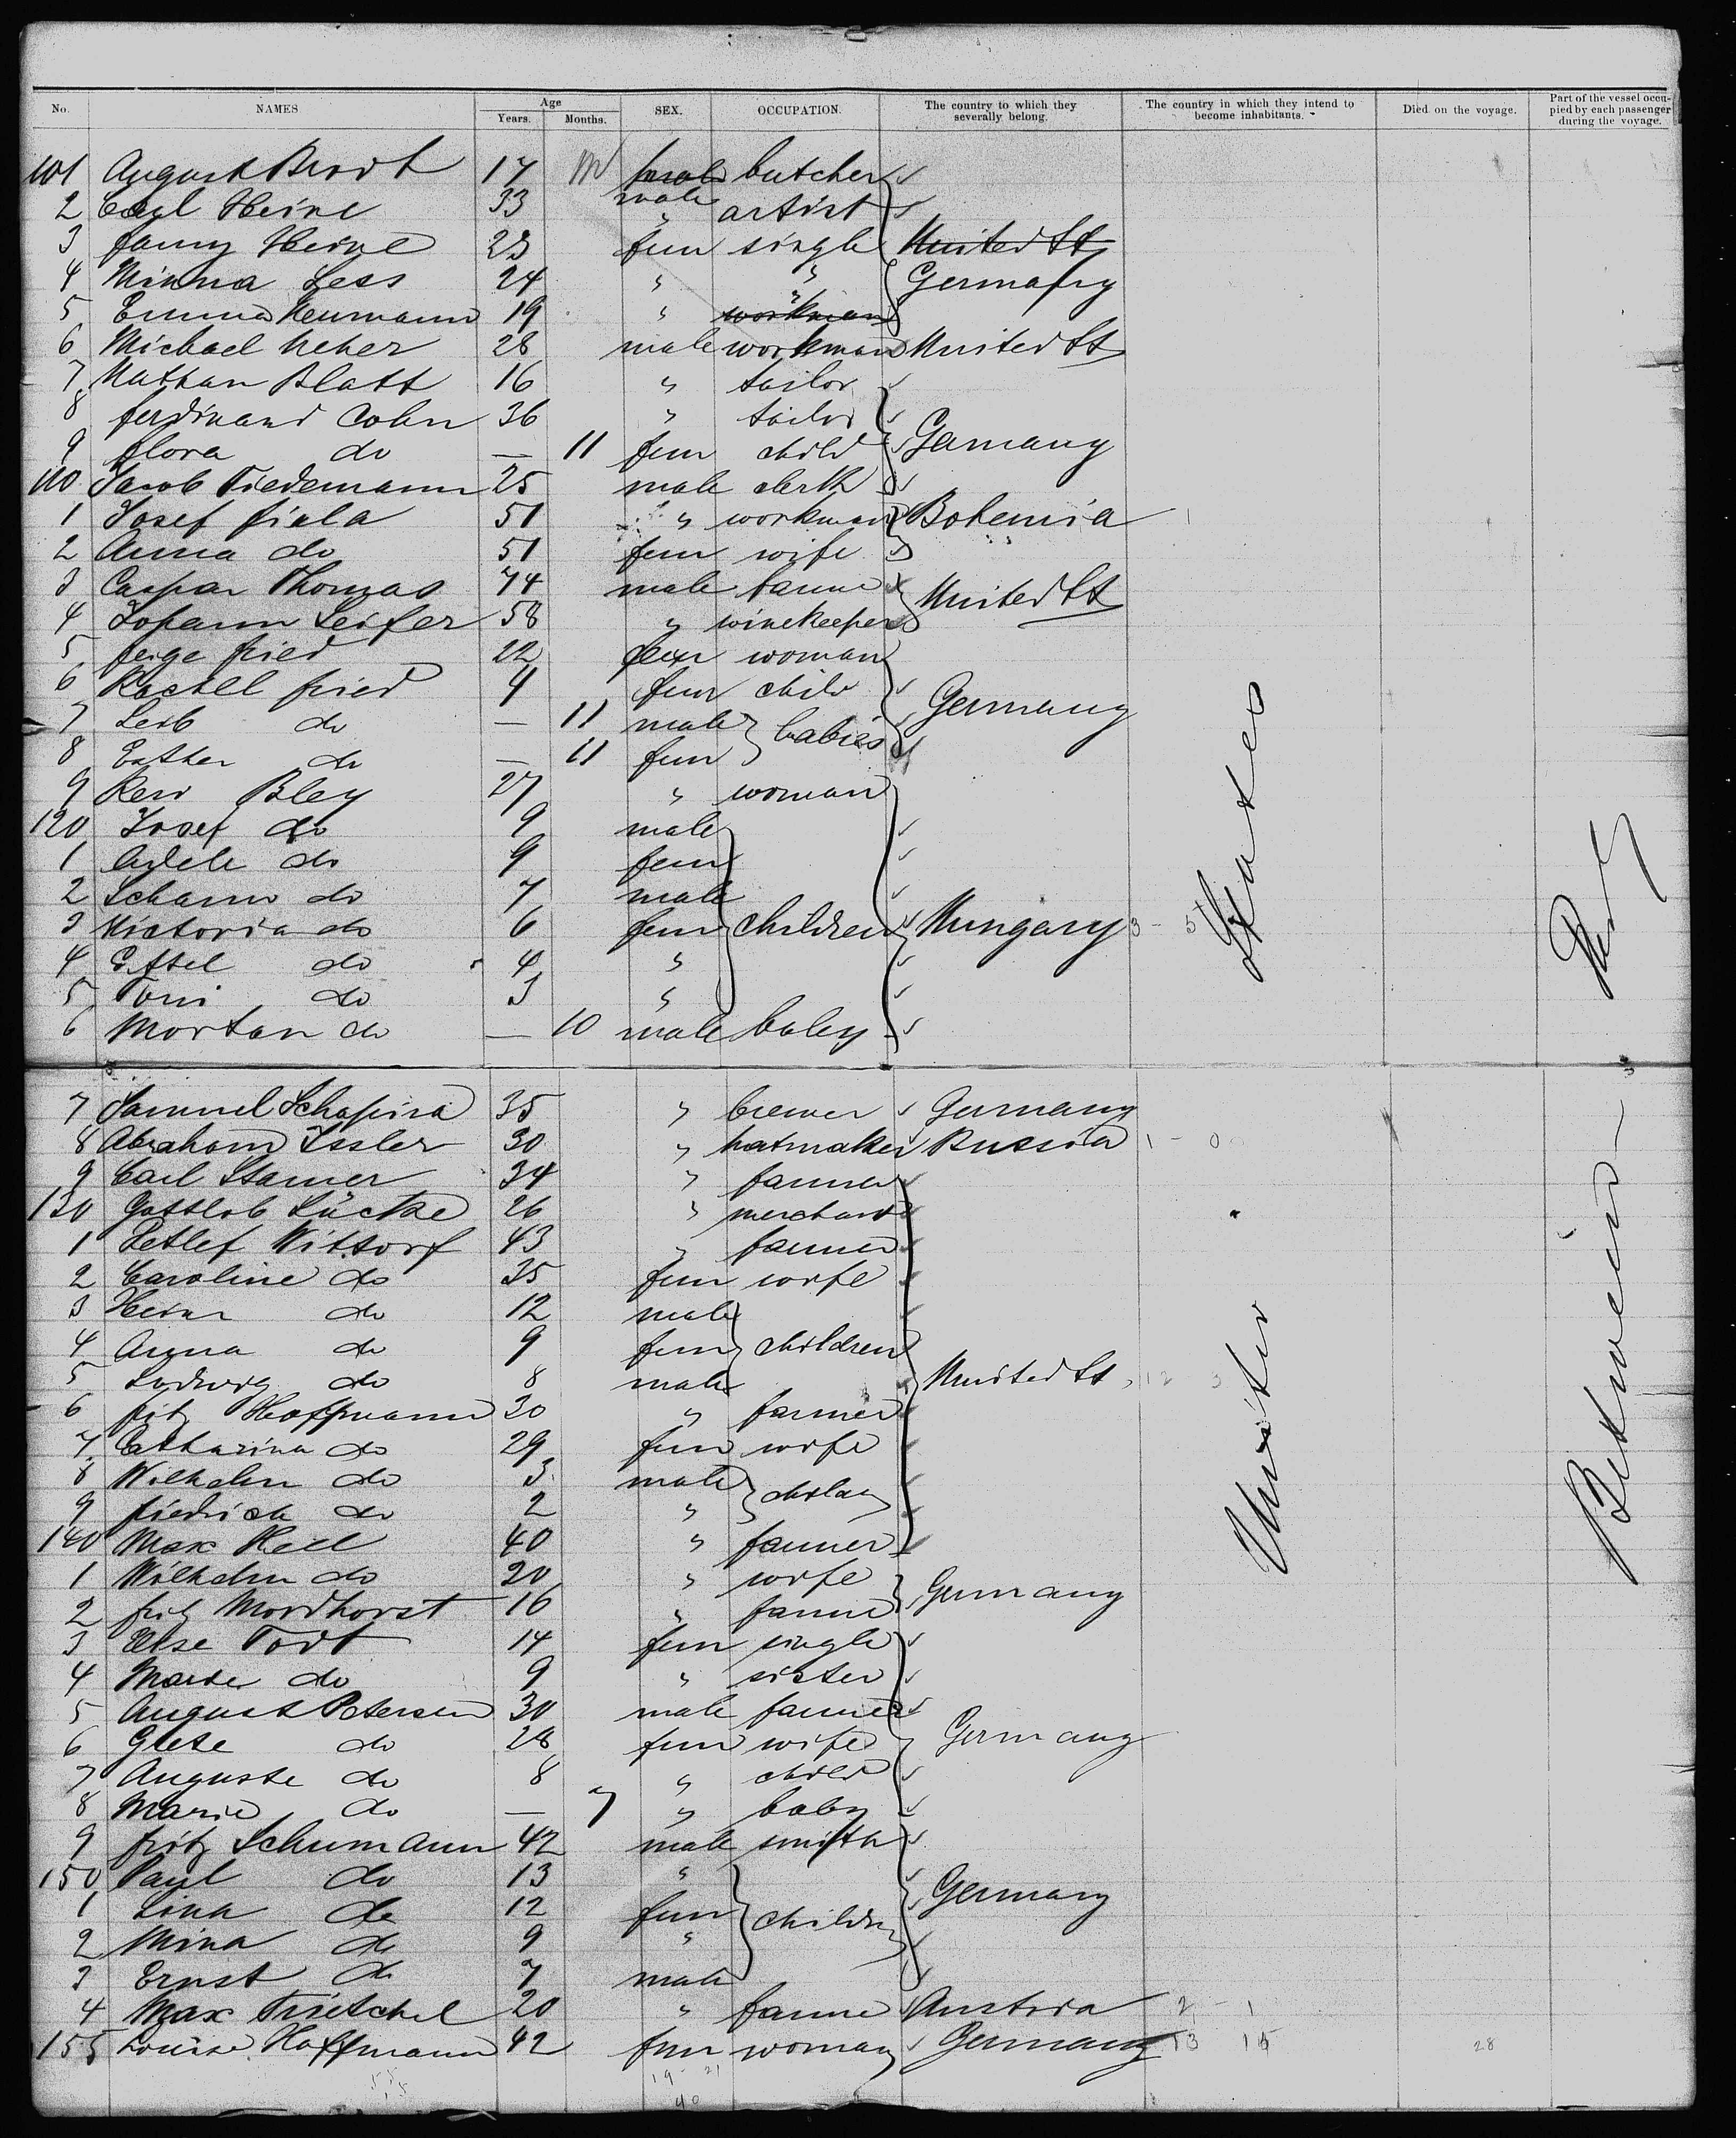 No. NAMES Age Years. Months. SEX. OCCUPATION. The country to which they severally belong. The country in which they intend to become inhabitants. Died on the voyage. Part of the vessel occupied by each passenger during the voyage.
101 August Brodt 17 male butcher
2 Carl Heine 33 " artist
3 fanny Heine 23 fem single United St
4 Minna Less 24 " " Germany
5 Emma Neumann 19 " " workman
6 Michael Neher 28 male workman United St
7 Nathan Blatt 16 " tailor
8 ferdinand Cohn 36 " tailor
9 flora do — 11 fem child Germany
110 Jacob Tiedemann 25 male clerk
1 Josef fiala 51 " workman Bohemia
2 Anna do 51 fem wife
3 Caspar Thomas 74 male farmer United St
4 Johann Seifer 58 " winekeeper
5 feige fried 22 fem woman
6 Rachel fried 4 fem child Germany
7 Leib do — 11 male babies
8 Esther do — 11 fem
9 Resi Bley 27 " woman
120 Josef do 9 male
1 Adele do 9 fem
2 Schamo do 7 male
3 Victoria do 6 fem children Hungary 3 - 5
4 Ettel do 4 "
5 Toni do 3 "
6 Mortan do — 10 male baby
7 Samuel Schapira 35 " brewer Germany
8 Abraham Issler 30 " hatmaker Russia 1 - 0
9 Carl Stamer 34 " farmer
130 Gottlob Lücke 26 " merchant
1 Detlef Wittorf 43 " farmer
2 Caroline do 35 fem wife
3 Heinr do 12 male
4 Anna do 9 fem children
5 Ludwig do 8 male United St 12 3
6 fritz Hoffmann 30 " farmer
7 Catharina do 29 fem wife
8 Wilhelm do 3 male
9 friedrich do 2 "
140 Max Heil 40 " farmer
1 Wilhelm do 20 " wife Germany
2 fritz Mordhorst 16 " farmer
3 Else Todt 14 fem single
4 Marie do 9 " sister
5 August Petersen 30 male farmer
6 Grete do 28 fem wife Germany
7 Auguste do 8 " child
8 Marie do — 7 " baby
9 fritz Schumann 42 male smith
150 Paul do 13 "
1 Lina do 12 fem children Germany
2 Mina do 9 "
3 Ernst do 7 male
4 Max Trietschel 20 " farmer Austria 2 - 1
155 Louise Hoffmann 42 fem woman Germany 13 15 28
United States
19 - 21
40